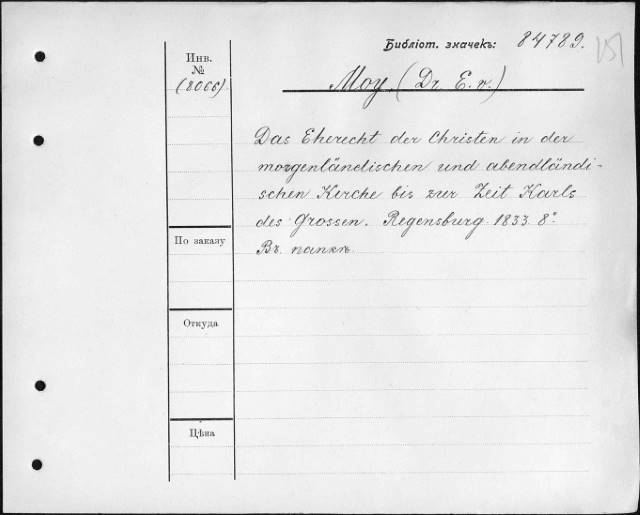 Библіот. значекъ: 84789.
Инв.
№
(2066)
Moy (Dr. E. v.)
Das Eherecht der Christen in der
morgenländischen und abendländi-
schen Kirche bis zur Zeit Karls
des Grossen. Regensburg. 1833. 8°
Въ папкѣ.
По заказу
Откуда
Цѣна